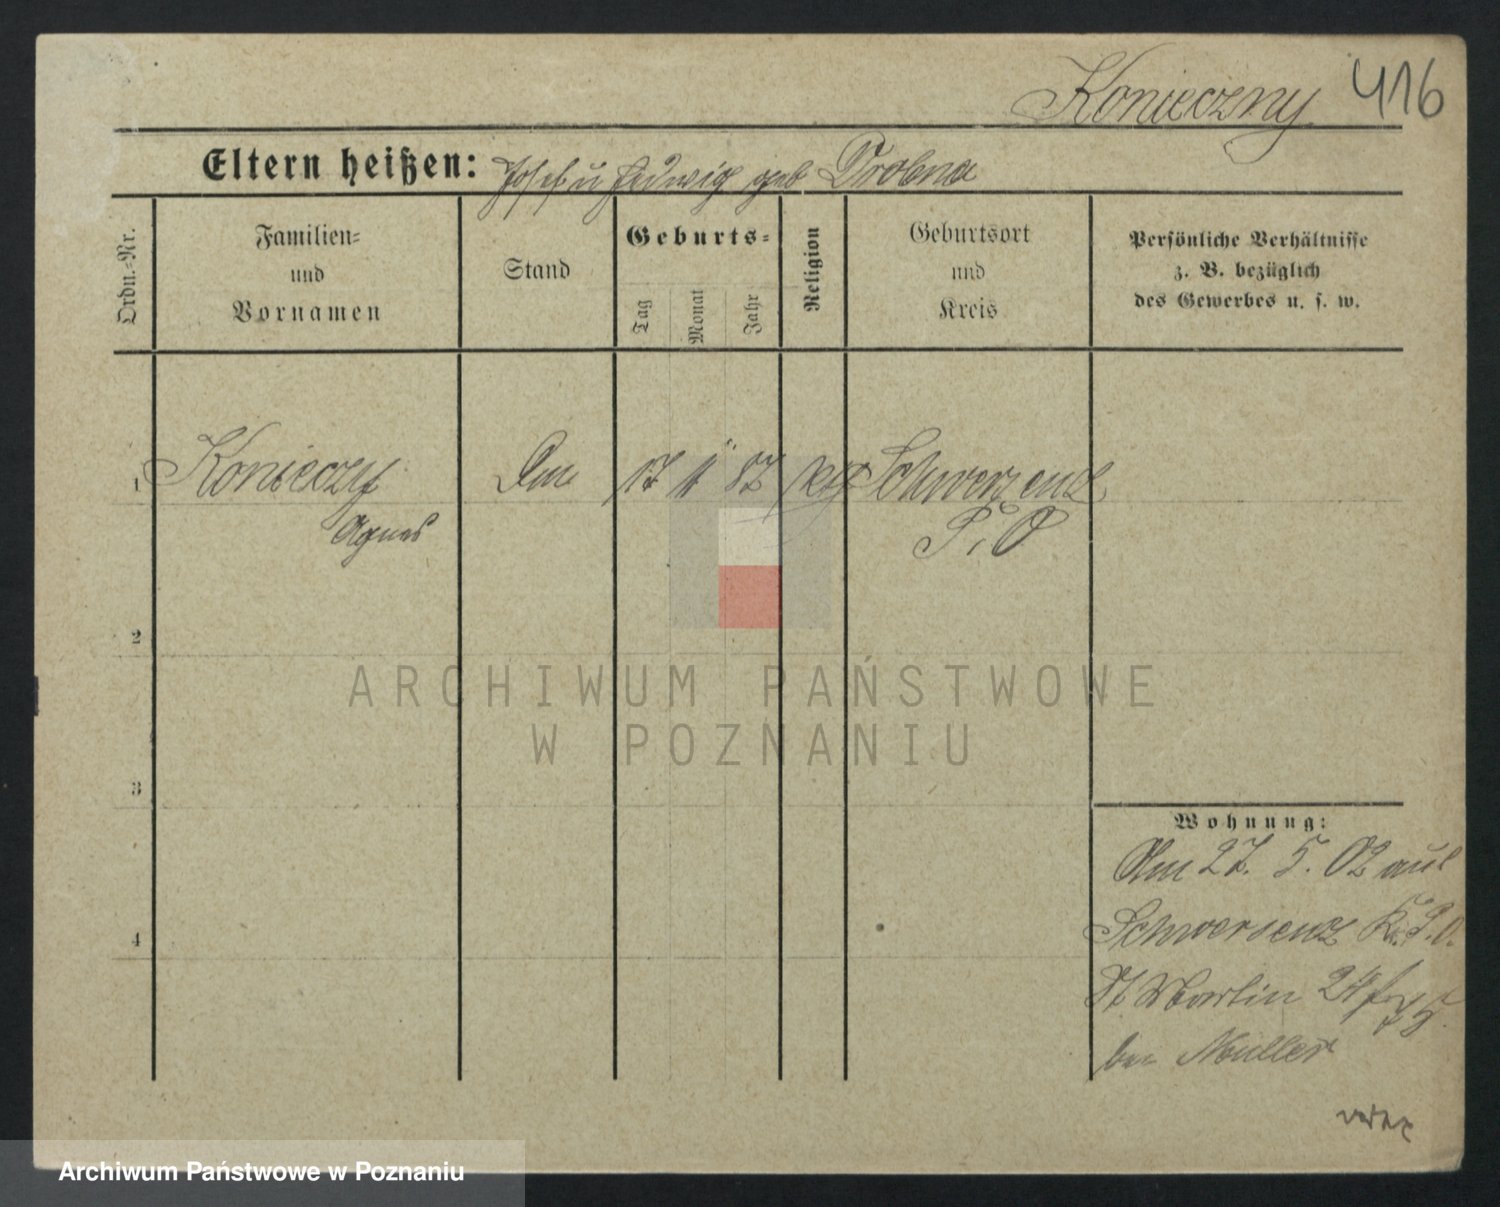 Konieczny 416
Eltern heißen: Josef u Hedwig geb Drobna
Ordn.-Nr.
Familien-
und
Vornamen
Stand
Geburts-
Tag
Monat
Jahr
Religion
Geburtsort
und
Kreis
Persönliche Verhältnisse
z. B. bezüglich
des Gewerbes u. s. w.
1 Konieczy 17 11 82 kth Schwersenz
Agnes P. O
2
3
4
Wohnung:
Am 27. 5. 02 aus
Schwersenz Kr. P. O.
St Martin 24
bei Müller
ARCHIWUM PAŃSTWOWE
W POZNANIU
Archiwum Państwowe w Poznaniu